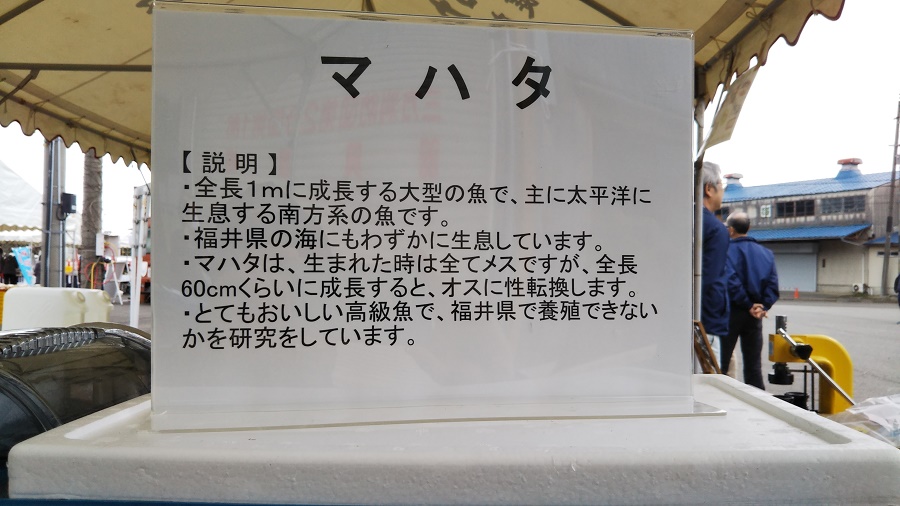 マハタ
【説明】
・全長１ｍに成長する大型の魚で、主に太平洋に
生息する南方系の魚です。
・福井県の海にもわずかに生息しています。
・マハタは、生まれた時は全てメスですが、全長
60cmくらいに成長すると、オスに性転換します。
・とてもおいしい高級魚で、福井県で養殖できない
かを研究をしています。